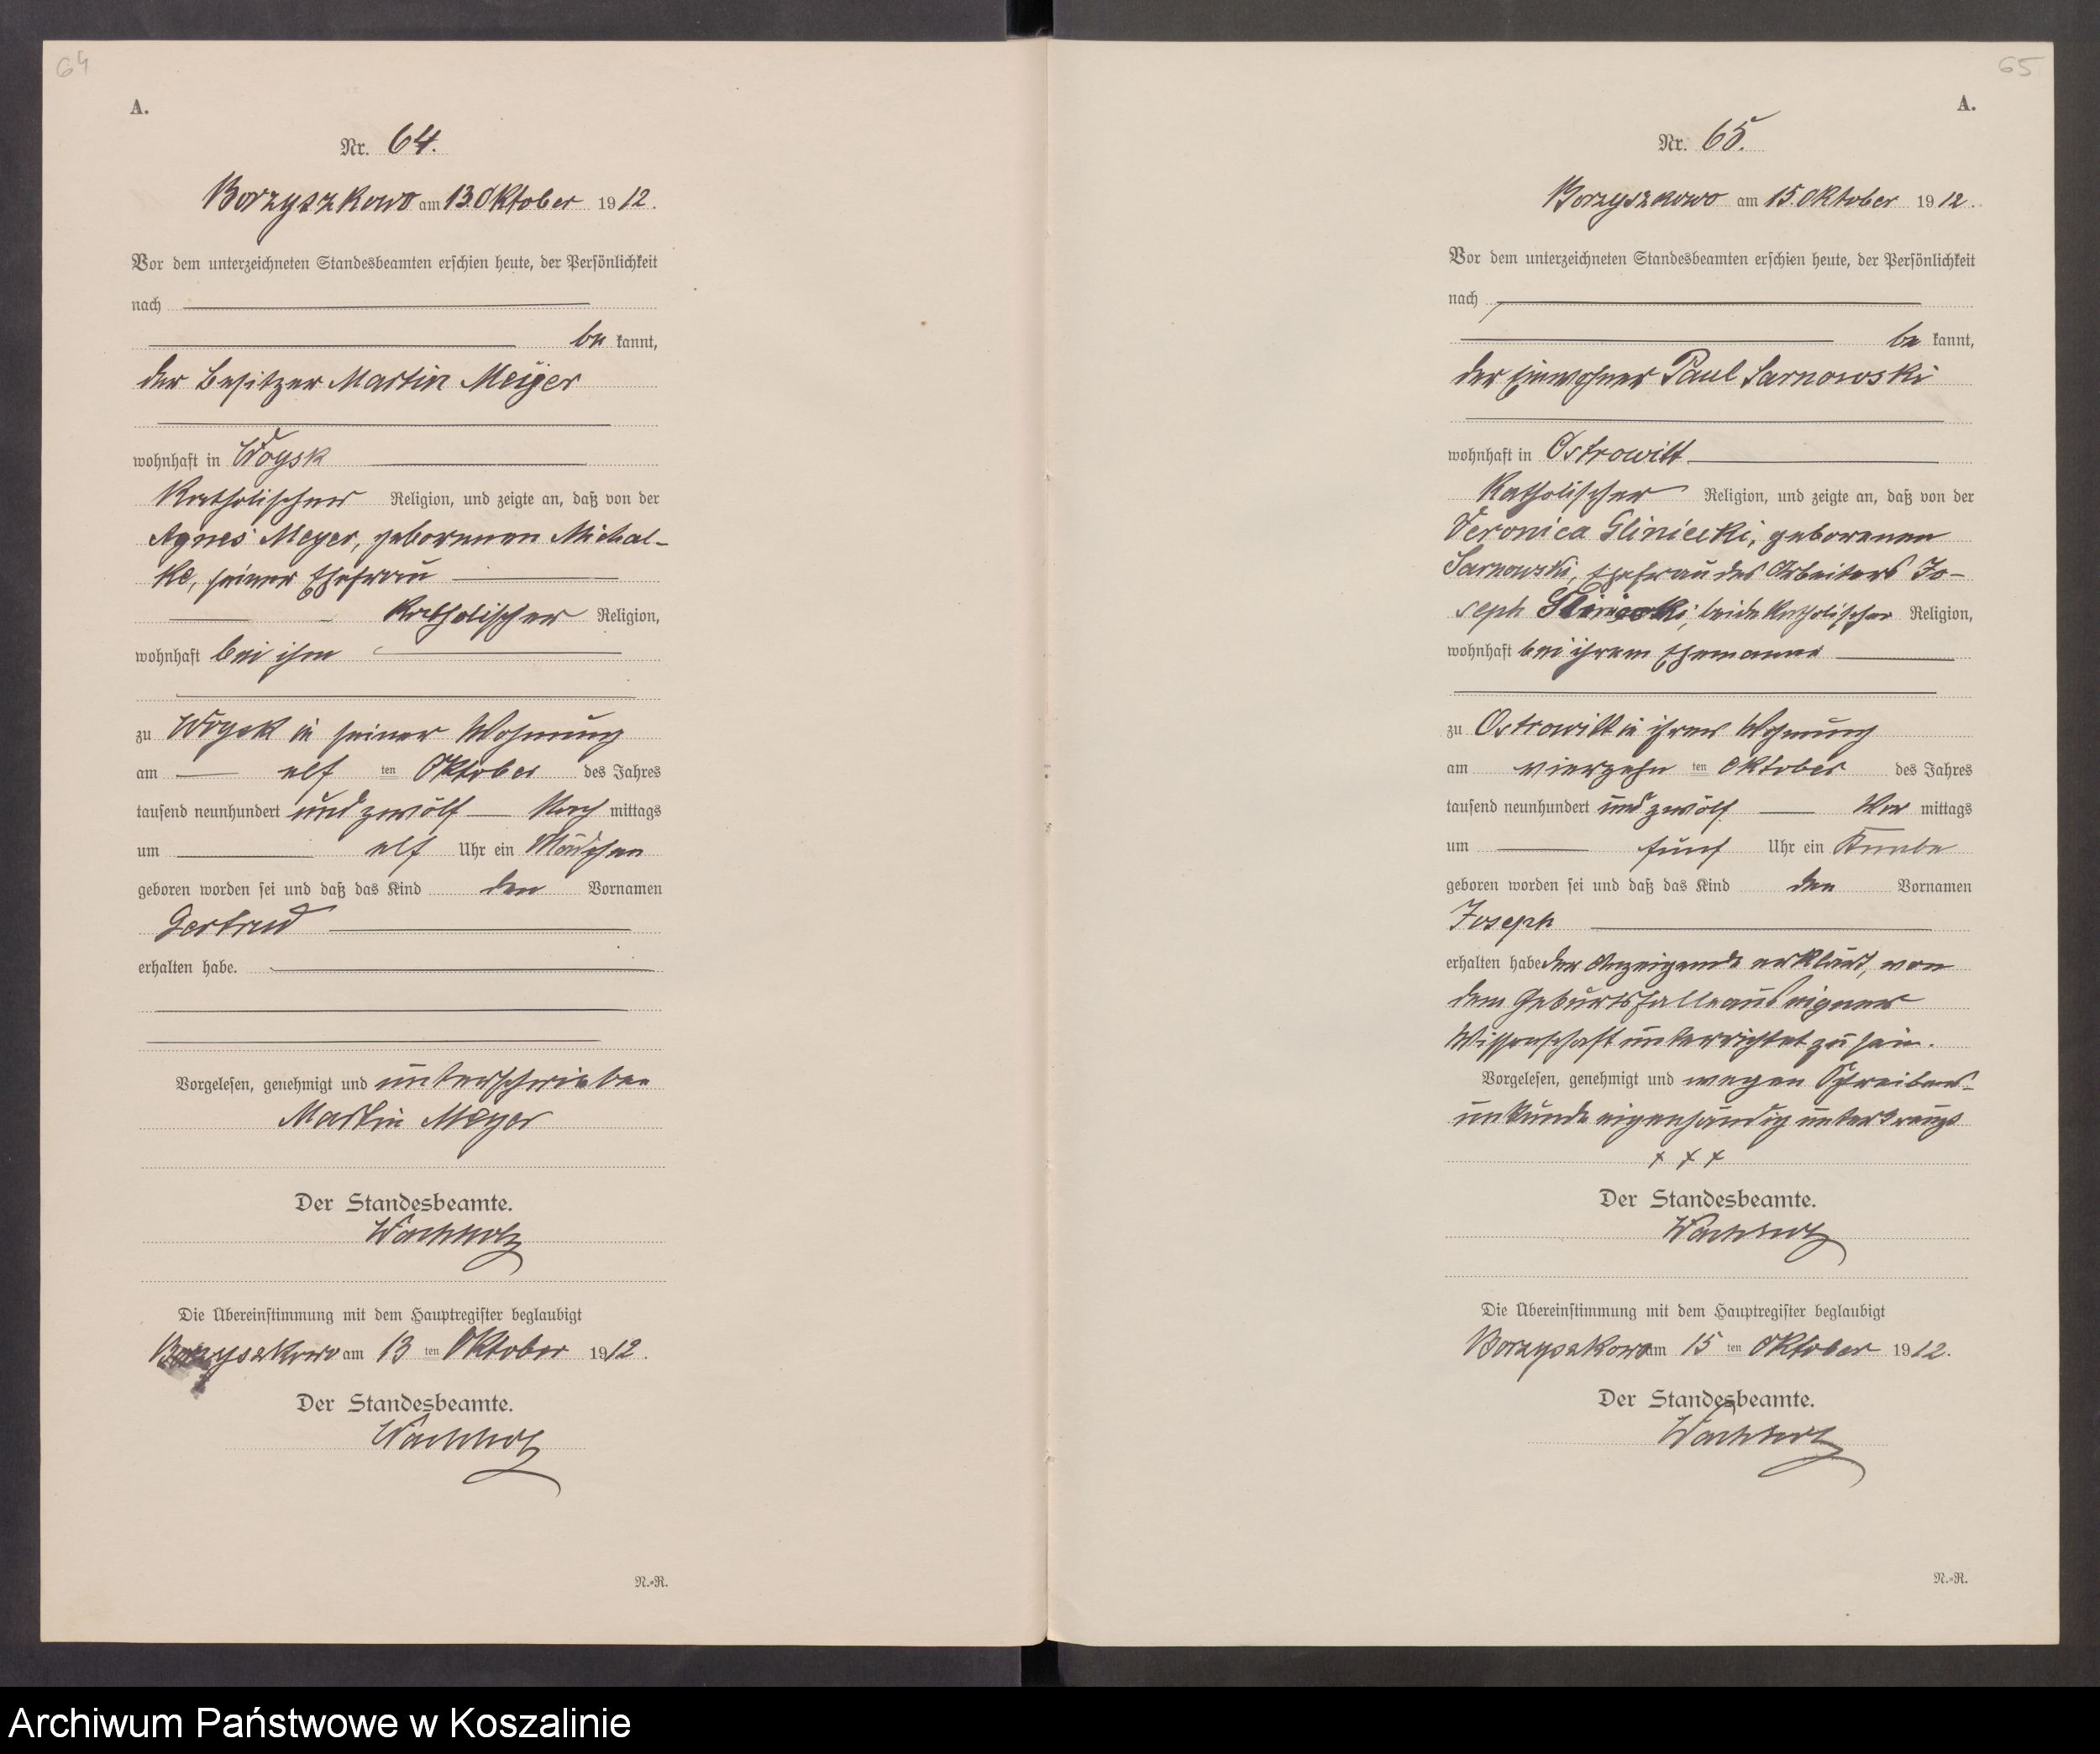 64
A.
Nr. 64.
Borzyszkowo am 13. Oktober 1912.
Vor dem unterzeichneten Standesbeamten erschien heute, der Persönlichkeit
nach
be kannt,
der Besitzer Martin Meyer
wohnhaft in Woysk
katholischer Religion, und zeigte an, daß von der
Agnes Meyer, geborenen Michal-
ke, seiner Ehefrau
katholischer Religion,
wohnhaft bei ihm
zu Woysk in seiner Wohnung
am elf ten Oktober des Jahres
tausend neunhundert und zwölf Nach mittags
um elf Uhr ein Mädchen
geboren worden sei und daß das Kind den Vornamen
Gertrud
erhalten habe.
Vorgelesen, genehmigt und unterschrieben
Martin Meyer
Der Standesbeamte.
Wachholz
Die Übereinstimmung mit dem Hauptregister beglaubigt
Borzyszkowo am 13 ten Oktober 1912.
Der Standesbeamte.
Wachholz
N.-R.
65
A.
Nr. 65.
Borzyszkowo am 15. Oktober 1912.
Vor dem unterzeichneten Standesbeamten erschien heute, der Persönlichkeit
nach
be kannt,
der Einwohner Paul Sarnowski
wohnhaft in Ostrowitt
katholischer Religion, und zeigte an, daß von der
Veronica Gliniecki, geborenen
Sarnowski, Ehefrau des Arbeiters Jo-
seph Gliniecki, beide katholischer Religion,
wohnhaft bei ihrem Ehemanne
zu Ostrowitt in ihrer Wohnung
am vierzehn ten Oktober des Jahres
tausend neunhundert und zwölf Vor mittags
um fünf Uhr ein Knabe
geboren worden sei und daß das Kind den Vornamen
Joseph
erhalten habe der Anzeigende erklärt, von
dem Geburtsfalle aus eigener
Wissenschaft unterrichtet zu sein.
Vorgelesen, genehmigt und wegen Schreibens-
unkunde eigenhändig unterkreuzt
+ + +
Der Standesbeamte.
Wachholz
Die Übereinstimmung mit dem Hauptregister beglaubigt
Borzyszkowo am 15 ten Oktober 1912.
Der Standesbeamte.
Wachholz
N.-R.
Archiwum Państwowe w Koszalinie